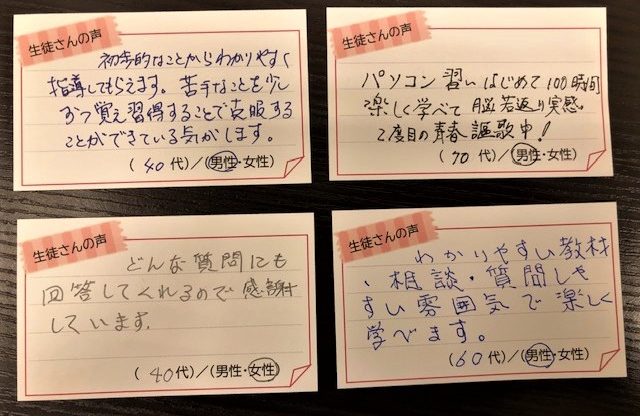 生徒さんの声
初歩的なことからわかりやすく
指導してもらえます。苦手なことを少し
ずつ覚え習得することで克服する
ことができている気がします。
(40代)/(男性・女性)
生徒さんの声
パソコン習いはじめて100時間
楽しく学べて脳若返り実感。
2度目の青春謳歌中!
(70代)/(男性・女性)
生徒さんの声
どんな質問にも
回答してくれるので感謝
しています。
(40代)/(男性・女性)
生徒さんの声
わかりやすい教材
、相談・質問しや
すい雰囲気で楽しく
学べます。
(60代)/(男性・女性)